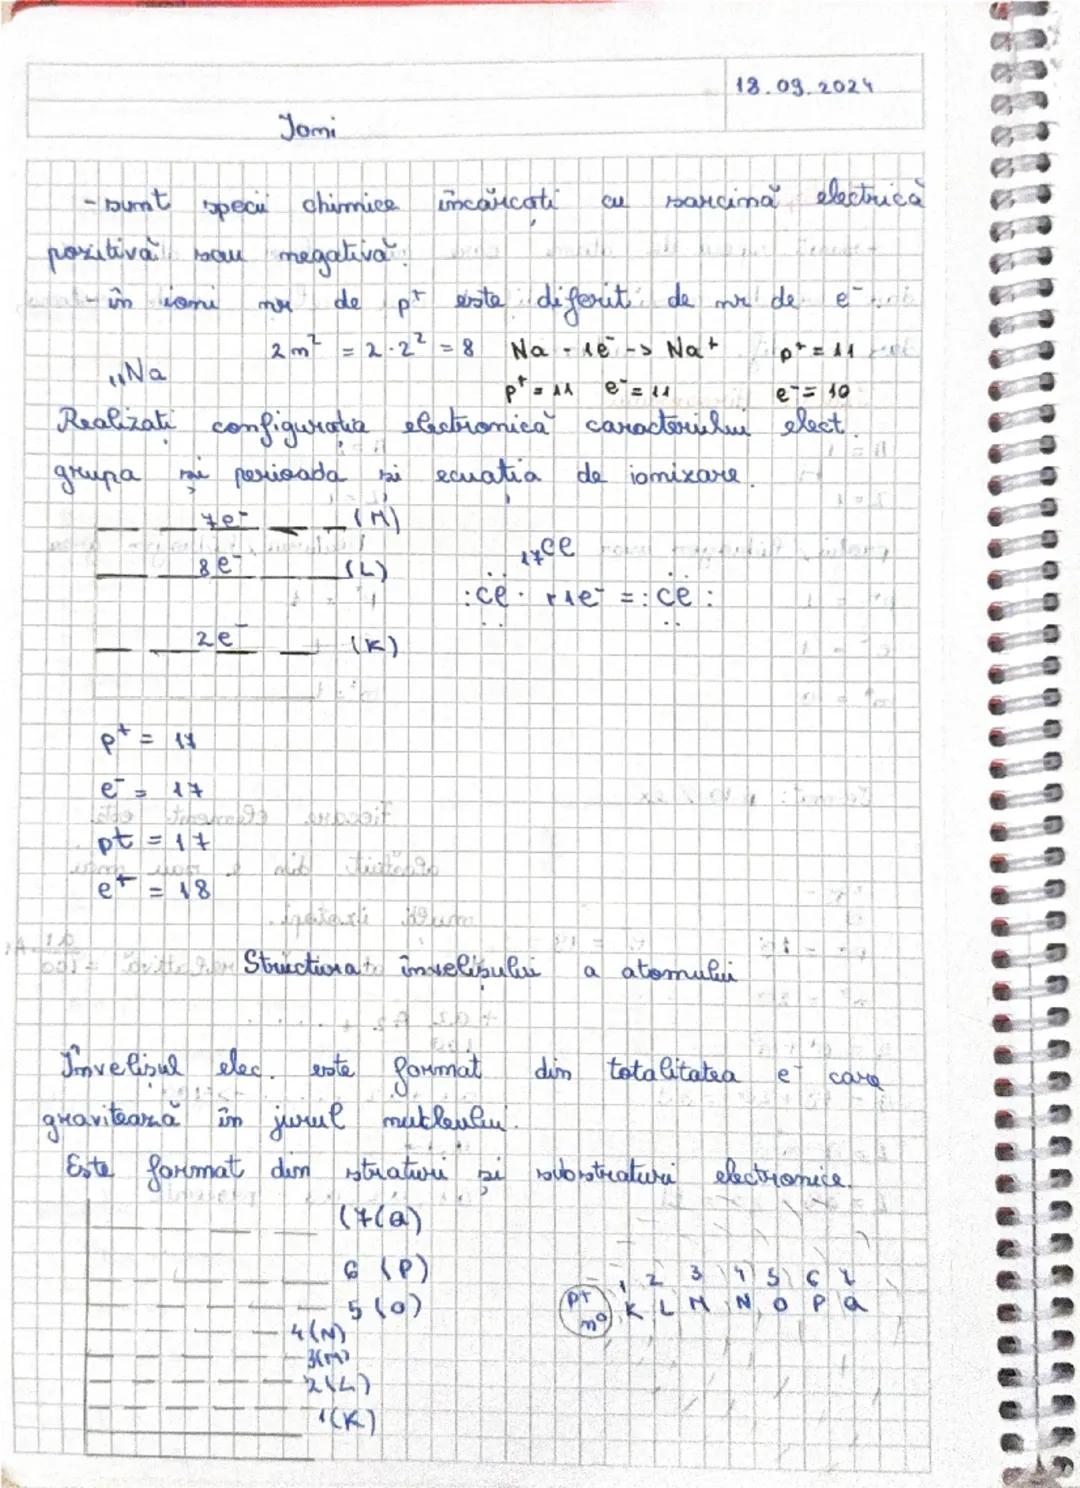 18.09.2024
Ioni
- sunt specii chimice încărcați cu sarcină electrică
pozitivă sau negativă.
- în ioni nr de p⁺ este diferit de nr de e⁻.
2n² = 2·2² = 8 Na - 1e⁻ -> Na⁺ p⁺ = 11
₁₁Na p⁺ = 11 e⁻ = 11 e⁻ = 10
Realizați configurația electronică caracterului elect.
grupa și perioada și ecuația de ionizare.
7e⁻ (M)
8e⁻ (L)
₁₇Cl
:Cl· +1e⁻ = :Cl:
2e⁻ (K)
p⁺ = 17
e⁻ = 17
p+ = 17
e⁺ = 18
Structura învelișului a atomului
Învelișul elec. este format din totalitatea e⁻ care
gravitează în jurul nukleului.
Este format din straturi și substraturi electronice.
(7(Q)
6 (P)
5 (O)
4(N)
3(M)
2(L)
1(K)
1 2 3 4 5 6 7
p+ n⁰ K L M N O P Q